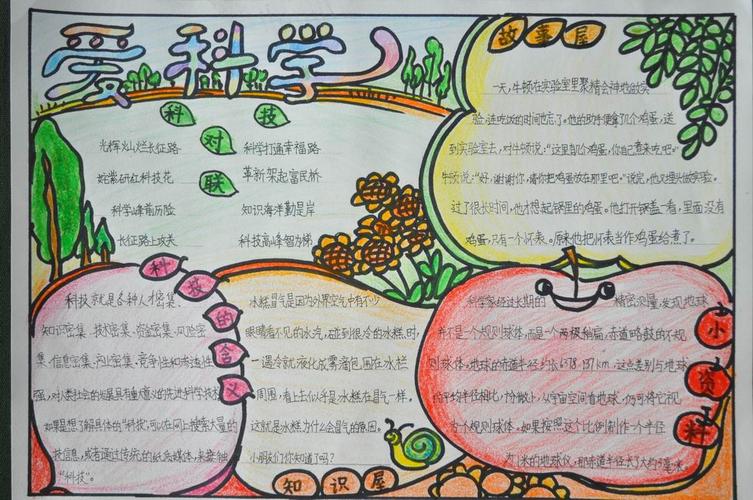 爱科学
科技对联
光辉灿烂长征路
科学打通幸福路
姹紫嫣红科技花
革新架起富民桥
科学峰前历险
知识海洋勤是岸
长征路上攻关
科技高峰智为梯
故事屋
一天,牛顿在实验室里聚精会神地做实
验,连吃饭的时间也忘了。他的助手便拿几个鸡蛋,送
到实验室去,对牛顿说:“这里几个鸡蛋,你自己煮来吃吧。”
牛顿说:“好,谢谢你,请你把鸡蛋放在那里吧。”说完,他又埋头做实验。
过了很长时间,他才想起锅里的鸡蛋。他打开锅盖一看,里面没有
鸡蛋,只有一个怀表。原来他把怀表当作鸡蛋给煮了。
科技的含义
科技就是各种人才密集、
知识密集、技术密集、资金密集、风险密
集、信息密集、产业密集、竞争性和渗透性
强,对人类社会的发展具有重大意义的先进科学技术
如果是想了解具体的“科技”,可以在网上搜索大量的
技信息,或者通过传统的纸质媒体,来接触
“科技”。
水糕冒气是因为外界空气中有不少
眼睛看不见的水汽,碰到很冷的水糕时,
一遇冷就液化成雾滴包围在水糕
周围,看上去似乎是水糕在冒气一样。
这就是水糕为什么会冒气的原因。
小朋友们你知道了吗?
知识屋
小资料
科学家经过长期的精密测量,发现地球
并不是一个规则球体,而是一个两极稍扁、赤道略鼓的不规
则球体,地球的赤道半径约长6378.137km,这点差别与地球
的平均半径相比,十分微小,从宇宙空间看地球,仍可将它视
为一个规则球体,如果按照这个比例制作一个半径
为1米的地球仪,那赤道半径长了大约3毫米。